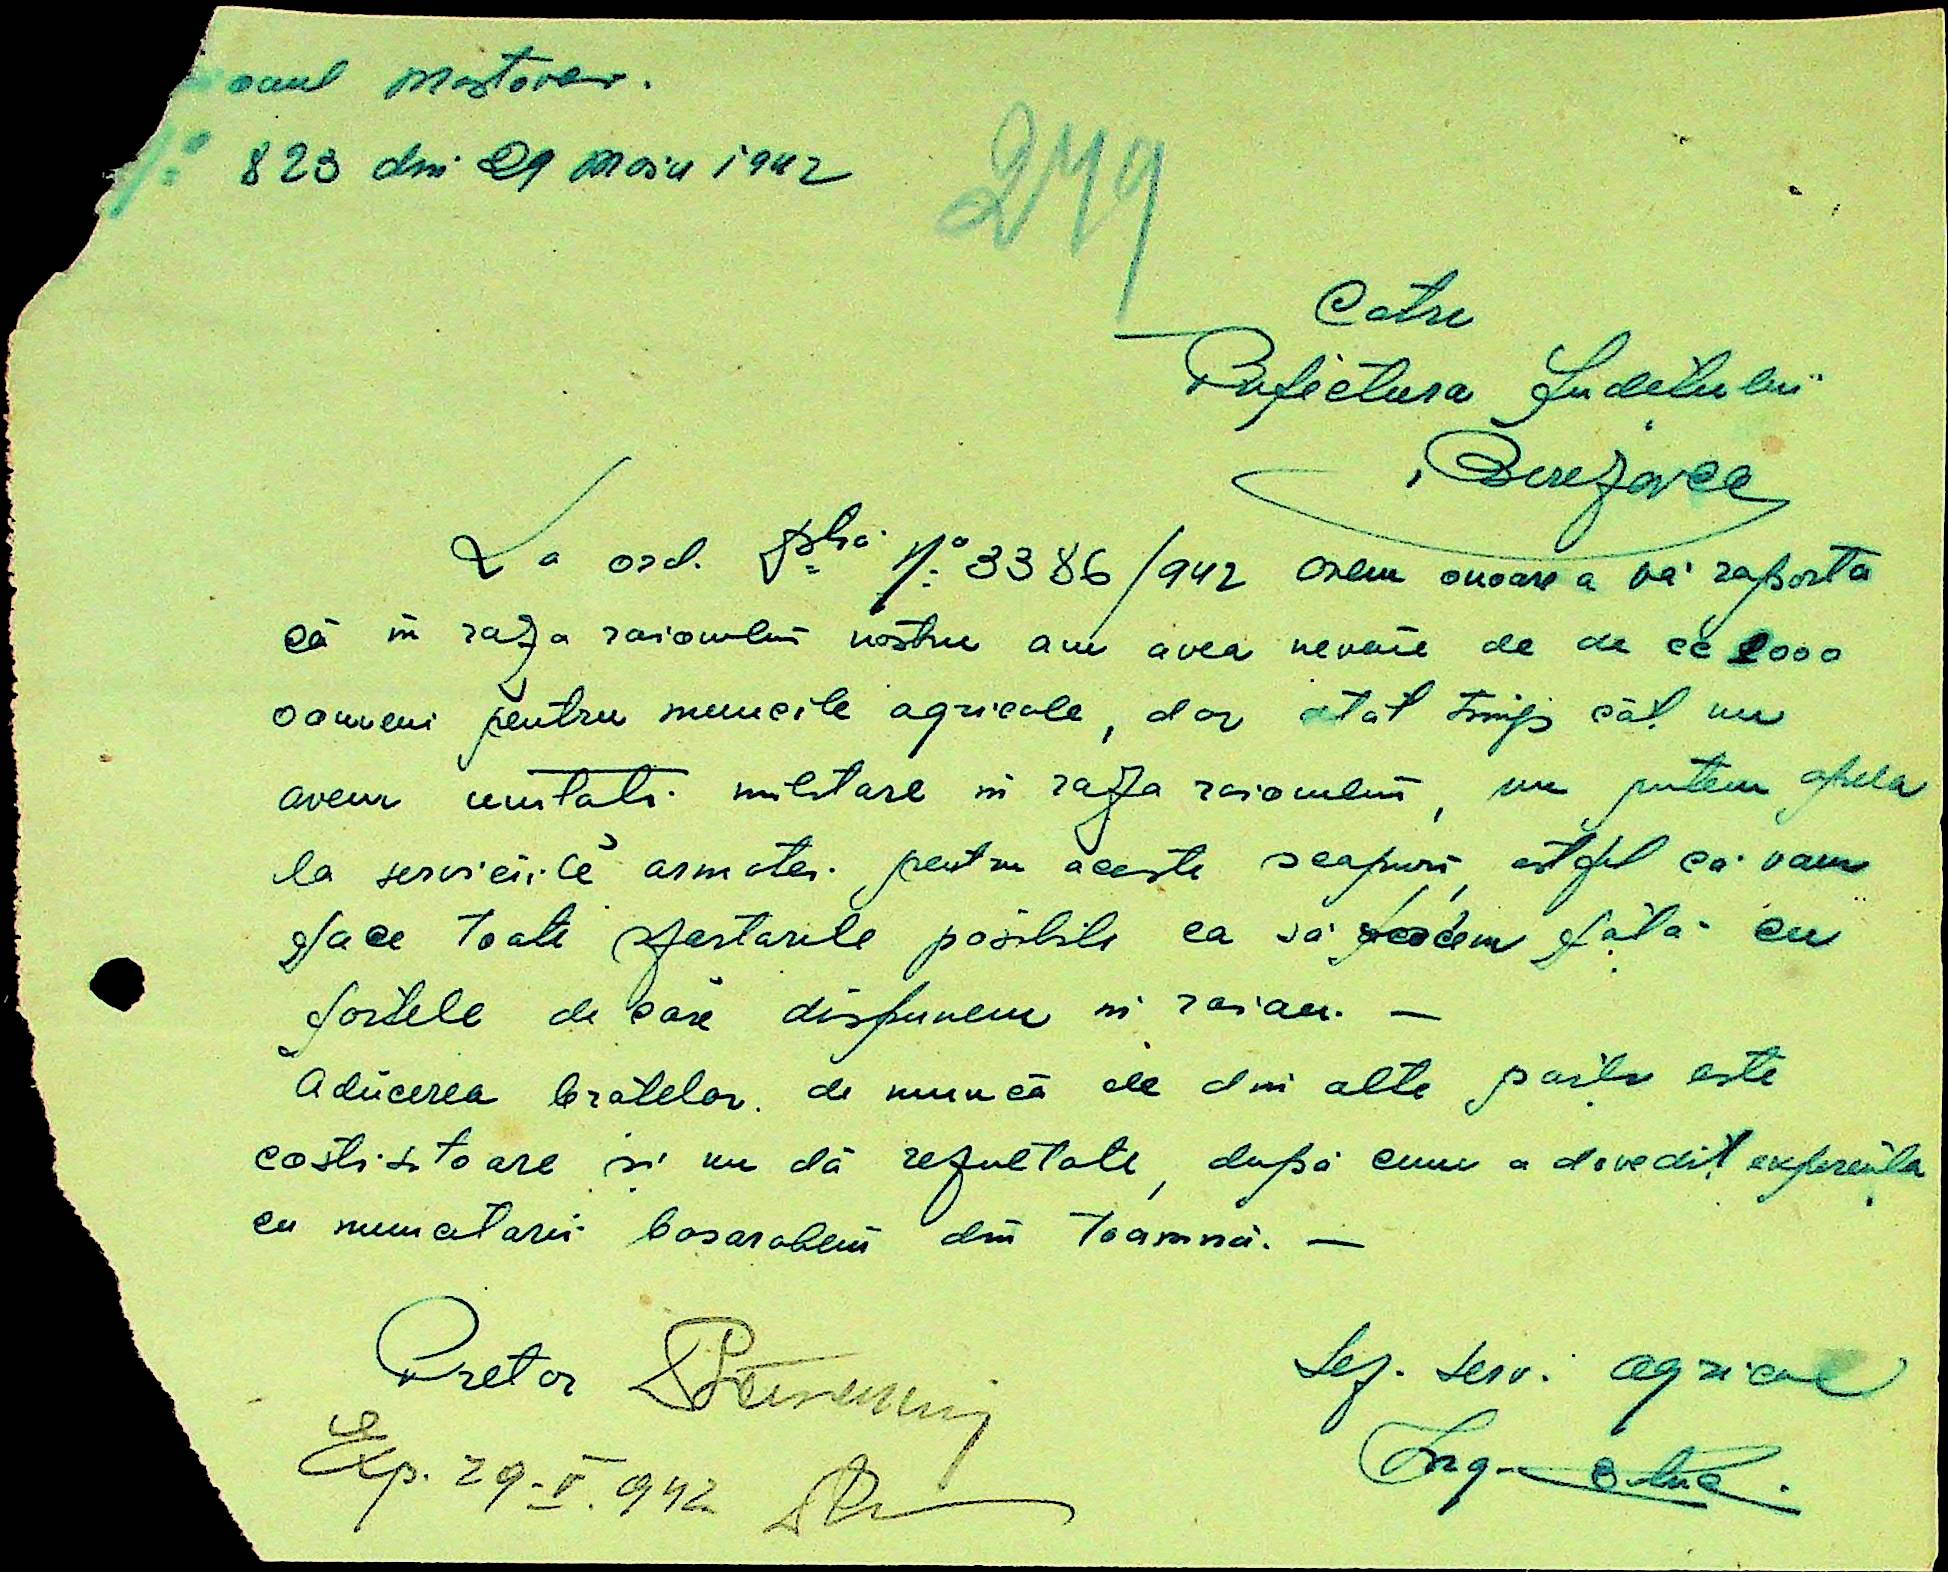 oanl Mostovoi.
No 823 din 29 Maiu 1942
249
Catre
Prefectura Județului
Berezovca
La ord. No 3386/942 avem onoare a vă raporta
că in raza raionului nostru am avea nevoie de de cc 2000
oameni pentru muncile agricole, dar atât timp cât nu
avem unitati militare in raza raionului, nu putem apela
la serviciile armatei pentru aceste scopuri, astfel că vom
face toate sfortarile posibile ca să facem față cu
fortele de care dispunem in raion. —
Aducerea bratelor de muncă de din alte parti este
costisitoare și nu dă rezultate, după cum a dovedit experiența
cu muncitorii basarabeni din toamnă. —
Pretor
Șef. Serv. Agricol
Exp. 29-V.942
Ing.